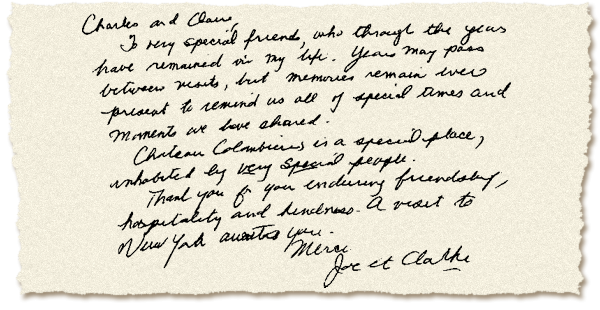 Charles and Claire,
To very special friends, who through the years
have remained in my life. Years may pass
between visits, but memories remain ever
present to remind us all of special times and
moments we have shared.
Chateau Colombieres is a special place,
inhabited by very special people.
Thank you for your enduring friendship,
hospitality and kindness. A visit to
New York awaits you.
Merci
Joe et